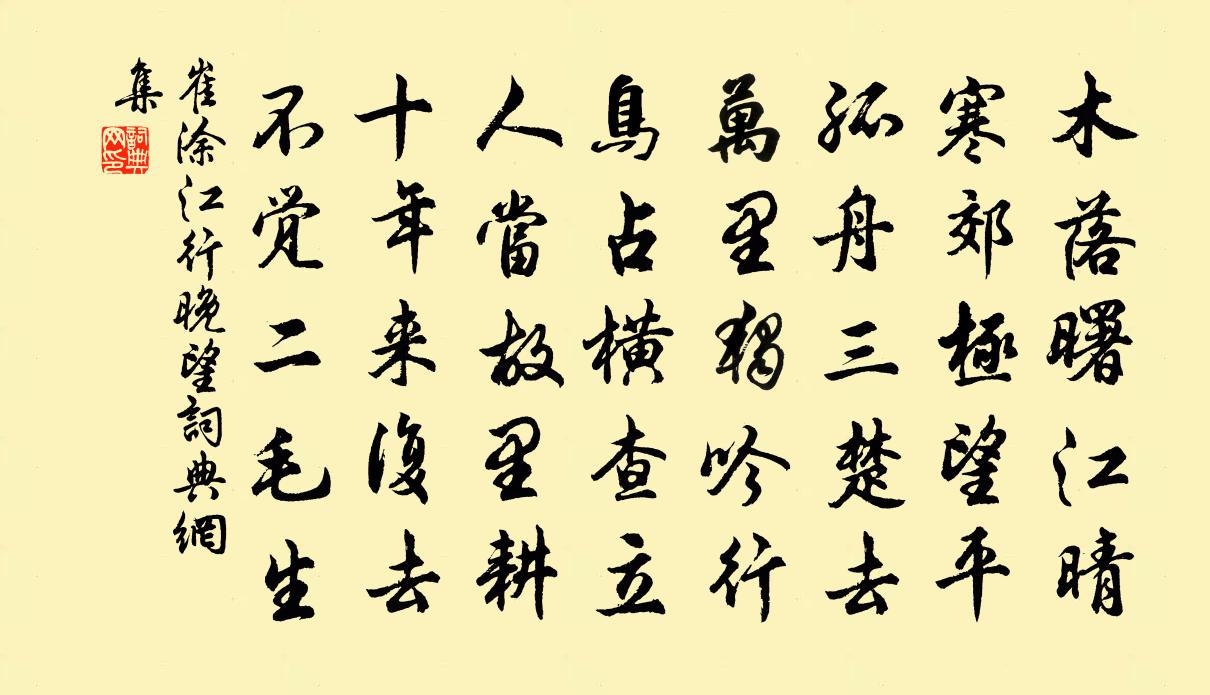 木落曙江晴
寒郊極望平
孤舟三楚去
萬里獨吟行
鳥占橫查立
人當故里耕
十年来復去
不覺二毛生
崔塗江行晚望詞典網
集
詞典
网印